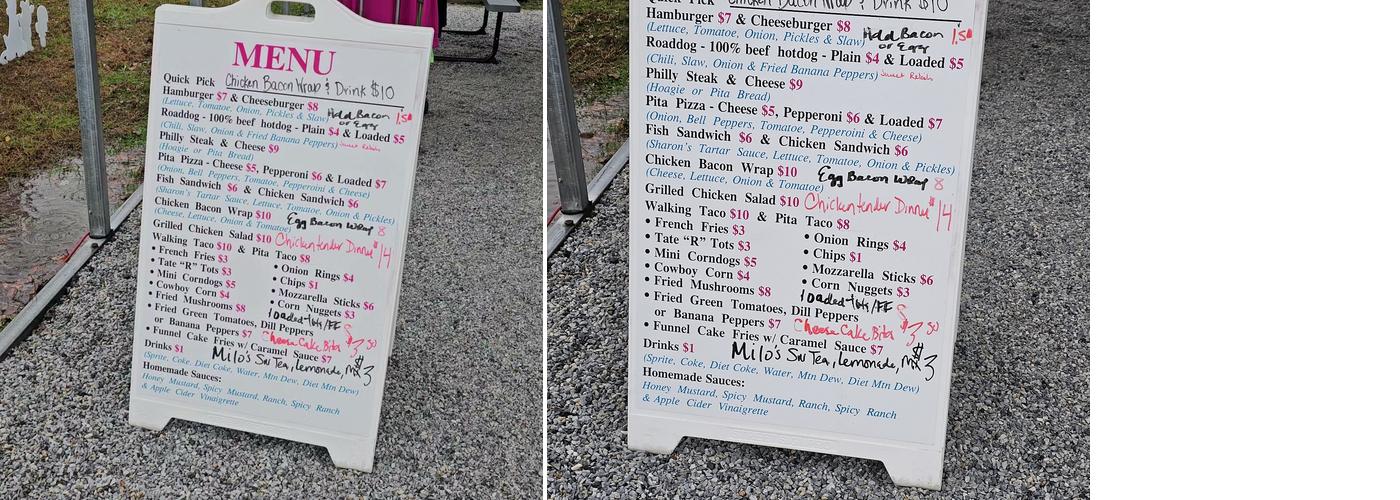 MENU
Quick Pick Chicken Bacon Wrap & Drink $10
Hamburger $7 & Cheeseburger $8
(Lettuce, Tomato, Onion, Pickles & Slaw) Add Bacon or Egg 1.50
Roaddog - 100% beef hotdog - Plain $4 & Loaded $5
(Chili, Slaw, Onion & Fried Banana Peppers) Sweet Relish
Philly Steak & Cheese $9
(Hoagie or Pita Bread)
Pita Pizza - Cheese $5, Pepperoni $6 & Loaded $7
(Onion, Bell Peppers, Tomatoe, Pepperoini & Cheese)
Fish Sandwich $6 & Chicken Sandwich $6
(Sharon's Tartar Sauce, Lettuce, Tomatoe, Onion & Pickles)
Chicken Bacon Wrap $10
(Cheese, Lettuce, Onion & Tomatoe) Egg Bacon Wrap 8
Grilled Chicken Salad $10 Chicken tender Dinner $14
Walking Taco $10 & Pita Taco $8
• French Fries $3
• Tate “R” Tots $3
• Mini Corndogs $5
• Cowboy Corn $4
• Fried Mushrooms $8
• Onion Rings $4
• Chips $1
• Mozzarella Sticks $6
• Corn Nuggets $3
loaded tots/FF 8
• Fried Green Tomatoes, Dill Peppers
or Banana Peppers $7 Cheese Cake Bites $3.50
• Funnel Cake Fries w/ Caramel Sauce $7
Drinks $1 Milo's Sw Tea, lemonade, $3
(Sprite, Coke, Diet Coke, Water, Mtn Dew, Diet Mtn Dew)
Homemade Sauces:
Honey Mustard, Spicy Mustard, Ranch, Spicy Ranch
& Apple Cider Vinaigrette
Quick Pick Chicken Bacon Wrap & Drink $10
Hamburger $7 & Cheeseburger $8
(Lettuce, Tomato, Onion, Pickles & Slaw) Add Bacon or Egg 1.50
Roaddog - 100% beef hotdog - Plain $4 & Loaded $5
(Chili, Slaw, Onion and Fried Banana Peppers) Sweet Relish
Philly Steak & Cheese $9
(Hoagie or Pita Bread)
Pita Pizza - Cheese $5, Pepperoni $6 & Loaded $7
(Onion, Bell Peppers, Tomatoe, Pepperoini & Cheese)
Fish Sandwich $6 & Chicken Sandwich $6
(Sharon's Tartar Sauce, Lettuce, Tomatoe, Onion & Pickles)
Chicken Bacon Wrap $10
(Cheese, Lettuce, Onion & Tomatoe) Egg Bacon Wrap 8
Grilled Chicken Salad $10 Chicken tender Dinner $14
Walking Taco $10 & Pita Taco $8
• French Fries $3
• Tate “R” Tots $3
• Mini Corndogs $5
• Cowboy Corn $4
• Fried Mushrooms $8
• Onion Rings $4
• Chips $1
• Mozzarella Sticks $6
• Corn Nuggets $3
loaded tots/FF 8
• Fried Green Tomatoes, Dill Peppers
or Banana Peppers $7 Cheese Cake Bites $3.50
• Funnel Cake Fries w/ Caramel Sauce $7
Drinks $1 Milo's Sw Tea, lemonade, $3
(Sprite, Coke, Diet Coke, Water, Mtn Dew, Diet Mtn Dew)
Homemade Sauces:
Honey Mustard, Spicy Mustard, Ranch, Spicy Ranch
& Apple Cider Vinaigrette